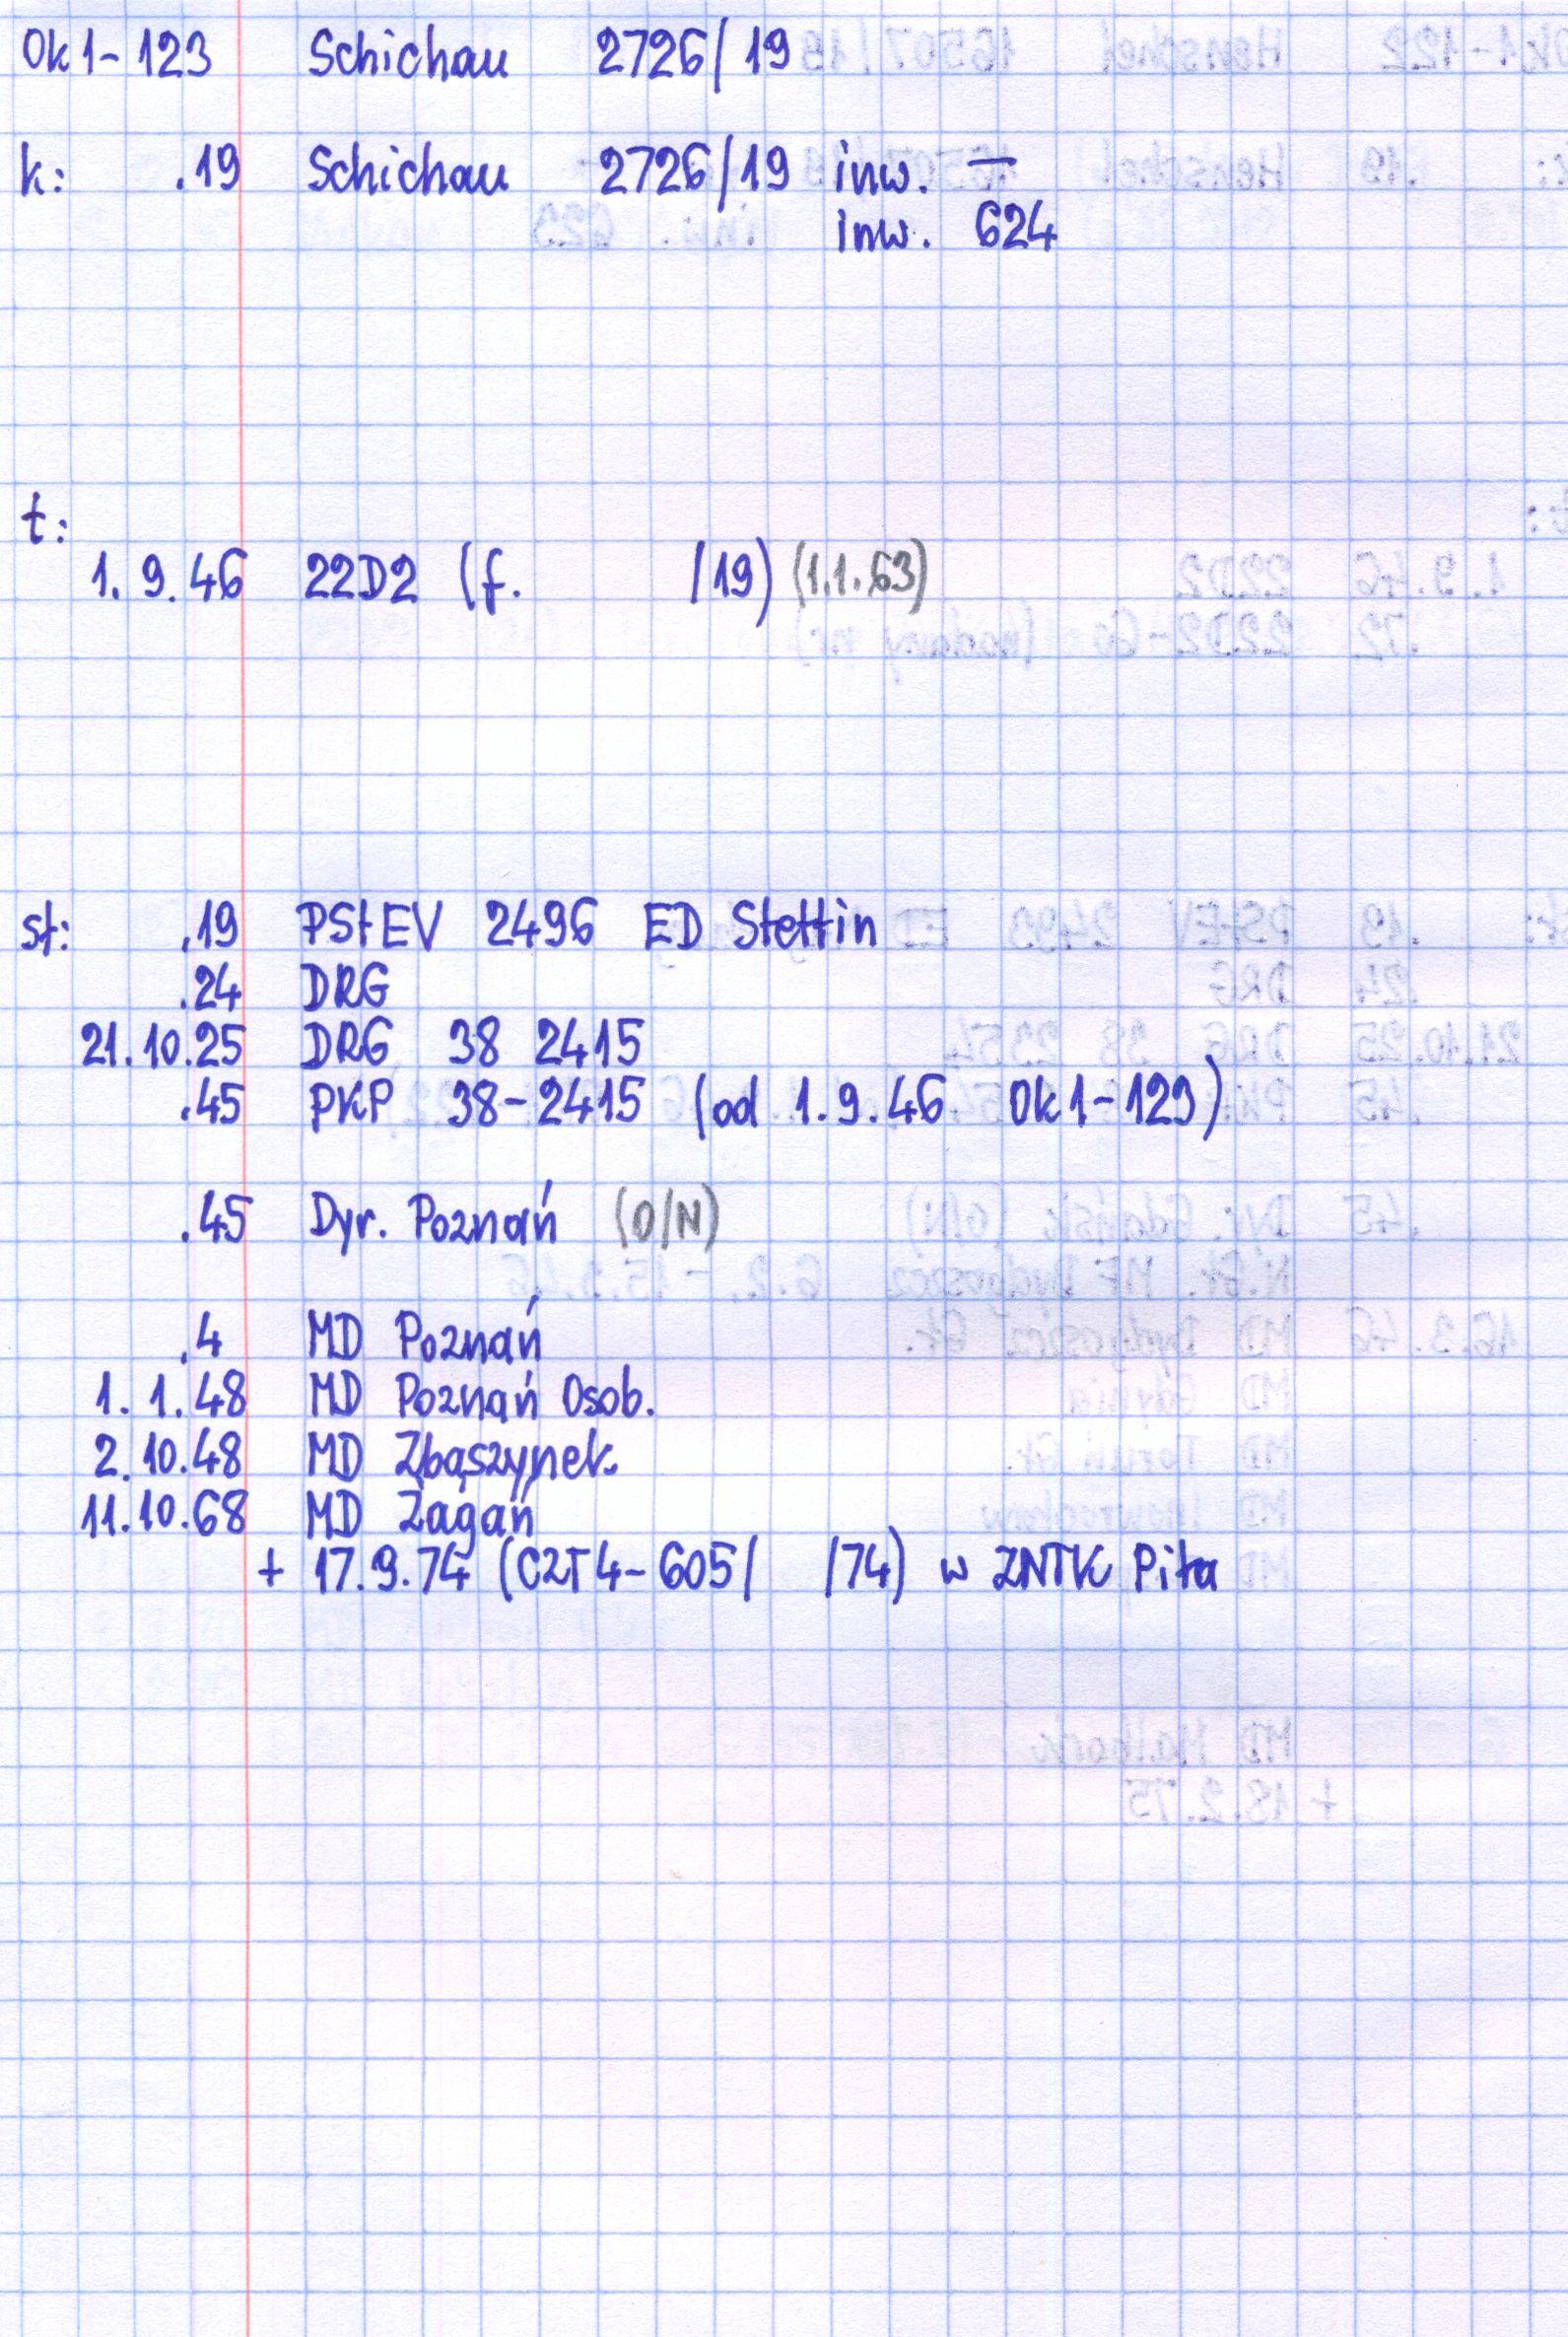 Ok1-123 Schichau 2726/19
k: .19 Schichau 2726/19 inw. —
inw. 624
t:
1.9.46 22D2 (f. /19) (1.1.63)
st: .19 PStEV 2496 ED Stettin
.24 DRG
21.10.25 DRG 38 2415
.45 PKP 38-2415 (od 1.9.46 Ok1-123)
.45 Dyr. Poznań (O/N)
.4 MD Poznań
1.1.48 MD Poznań Osob.
2.10.48 MD Zbąszynek
11.10.68 MD Żagań
+ 17.9.74 (CZT4-605/ /74) w ZNTK Piła